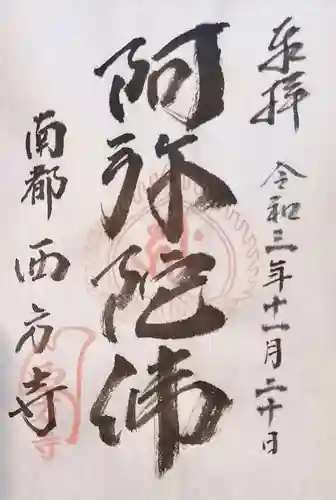 奉拝
令和三年十一月二十日
阿弥陀佛
南都
西方寺